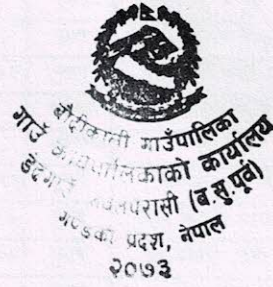 बौदीकाली गाउँपालिका
गाउँ कार्यपालिकाको कार्यालय
डेढगाउँ नवलपरासी (ब.सु.पूर्व)
गण्डकी प्रदेश, नेपाल
२०७३